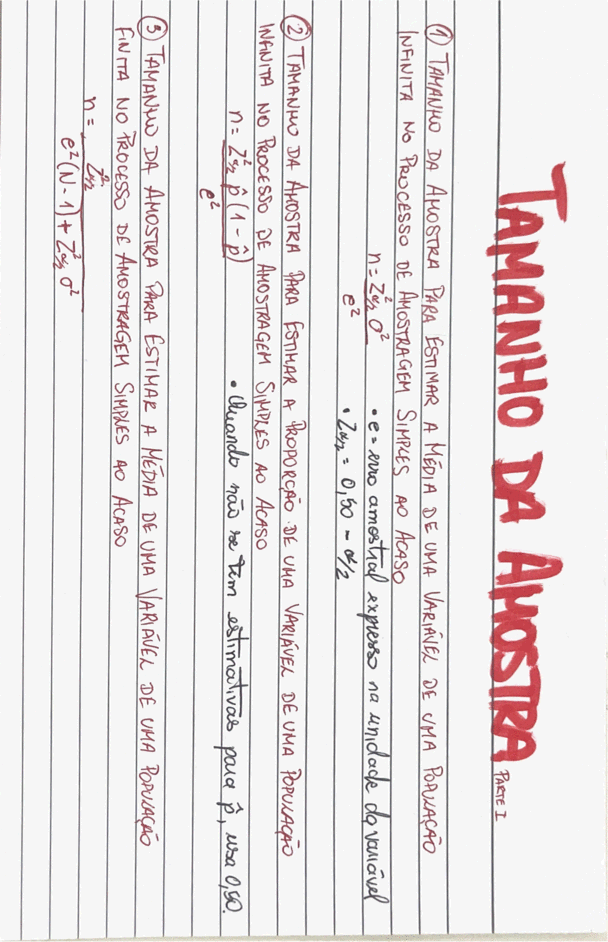 TAMANHO DA AMOSTRA PARTE I
① TAMANHO DA AMOSTRA PARA ESTIMAR A MÉDIA DE UMA VARIÁVEL DE UMA POPULAÇÃO
INFINITA NO PROCESSO DE AMOSTRAGEM SIMPLES AO ACASO
n = Z²α/2 σ² / e²
• e = erro amostral expresso na unidade da variável
• Zα/2 = 0,50 - α/2
② TAMANHO DA AMOSTRA PARA ESTIMAR A PROPORÇÃO DE UMA VARIÁVEL DE UMA POPULAÇÃO
INFINITA NO PROCESSO DE AMOSTRAGEM SIMPLES AO ACASO
n = Z²α/2 p̂ (1 - p̂) / e²
• Quando não se tem estimativas para p̂, usa 0,50.
③ TAMANHO DA AMOSTRA PARA ESTIMAR A MÉDIA DE UMA VARIÁVEL DE UMA POPULAÇÃO
FINITA NO PROCESSO DE AMOSTRAGEM SIMPLES AO ACASO
n = Z²α/2 / e² (N - 1) + Z²α/2 σ²